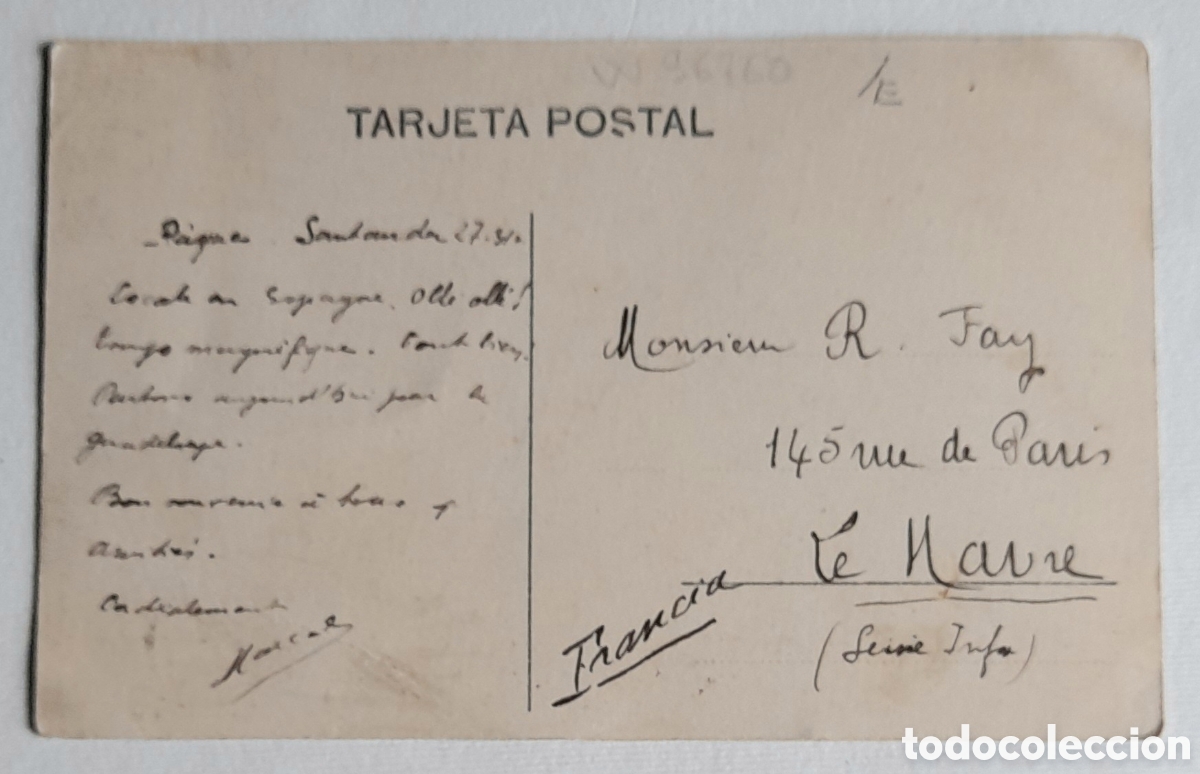 W 96760
/E
TARJETA POSTAL
Pâques Santander 27.
Escale en Espagne. Ollé ollé!
Temps magnifique. Tout bien,
Partons aujourd'hui pour la
Guadeloupe.
Bon souvenir à tous &
Amitiés.
Cordialement
Marcel
Monsieur R. Fay
145 rue de Paris
Le Havre
(Seine Infre)
Francia
todocoleccion